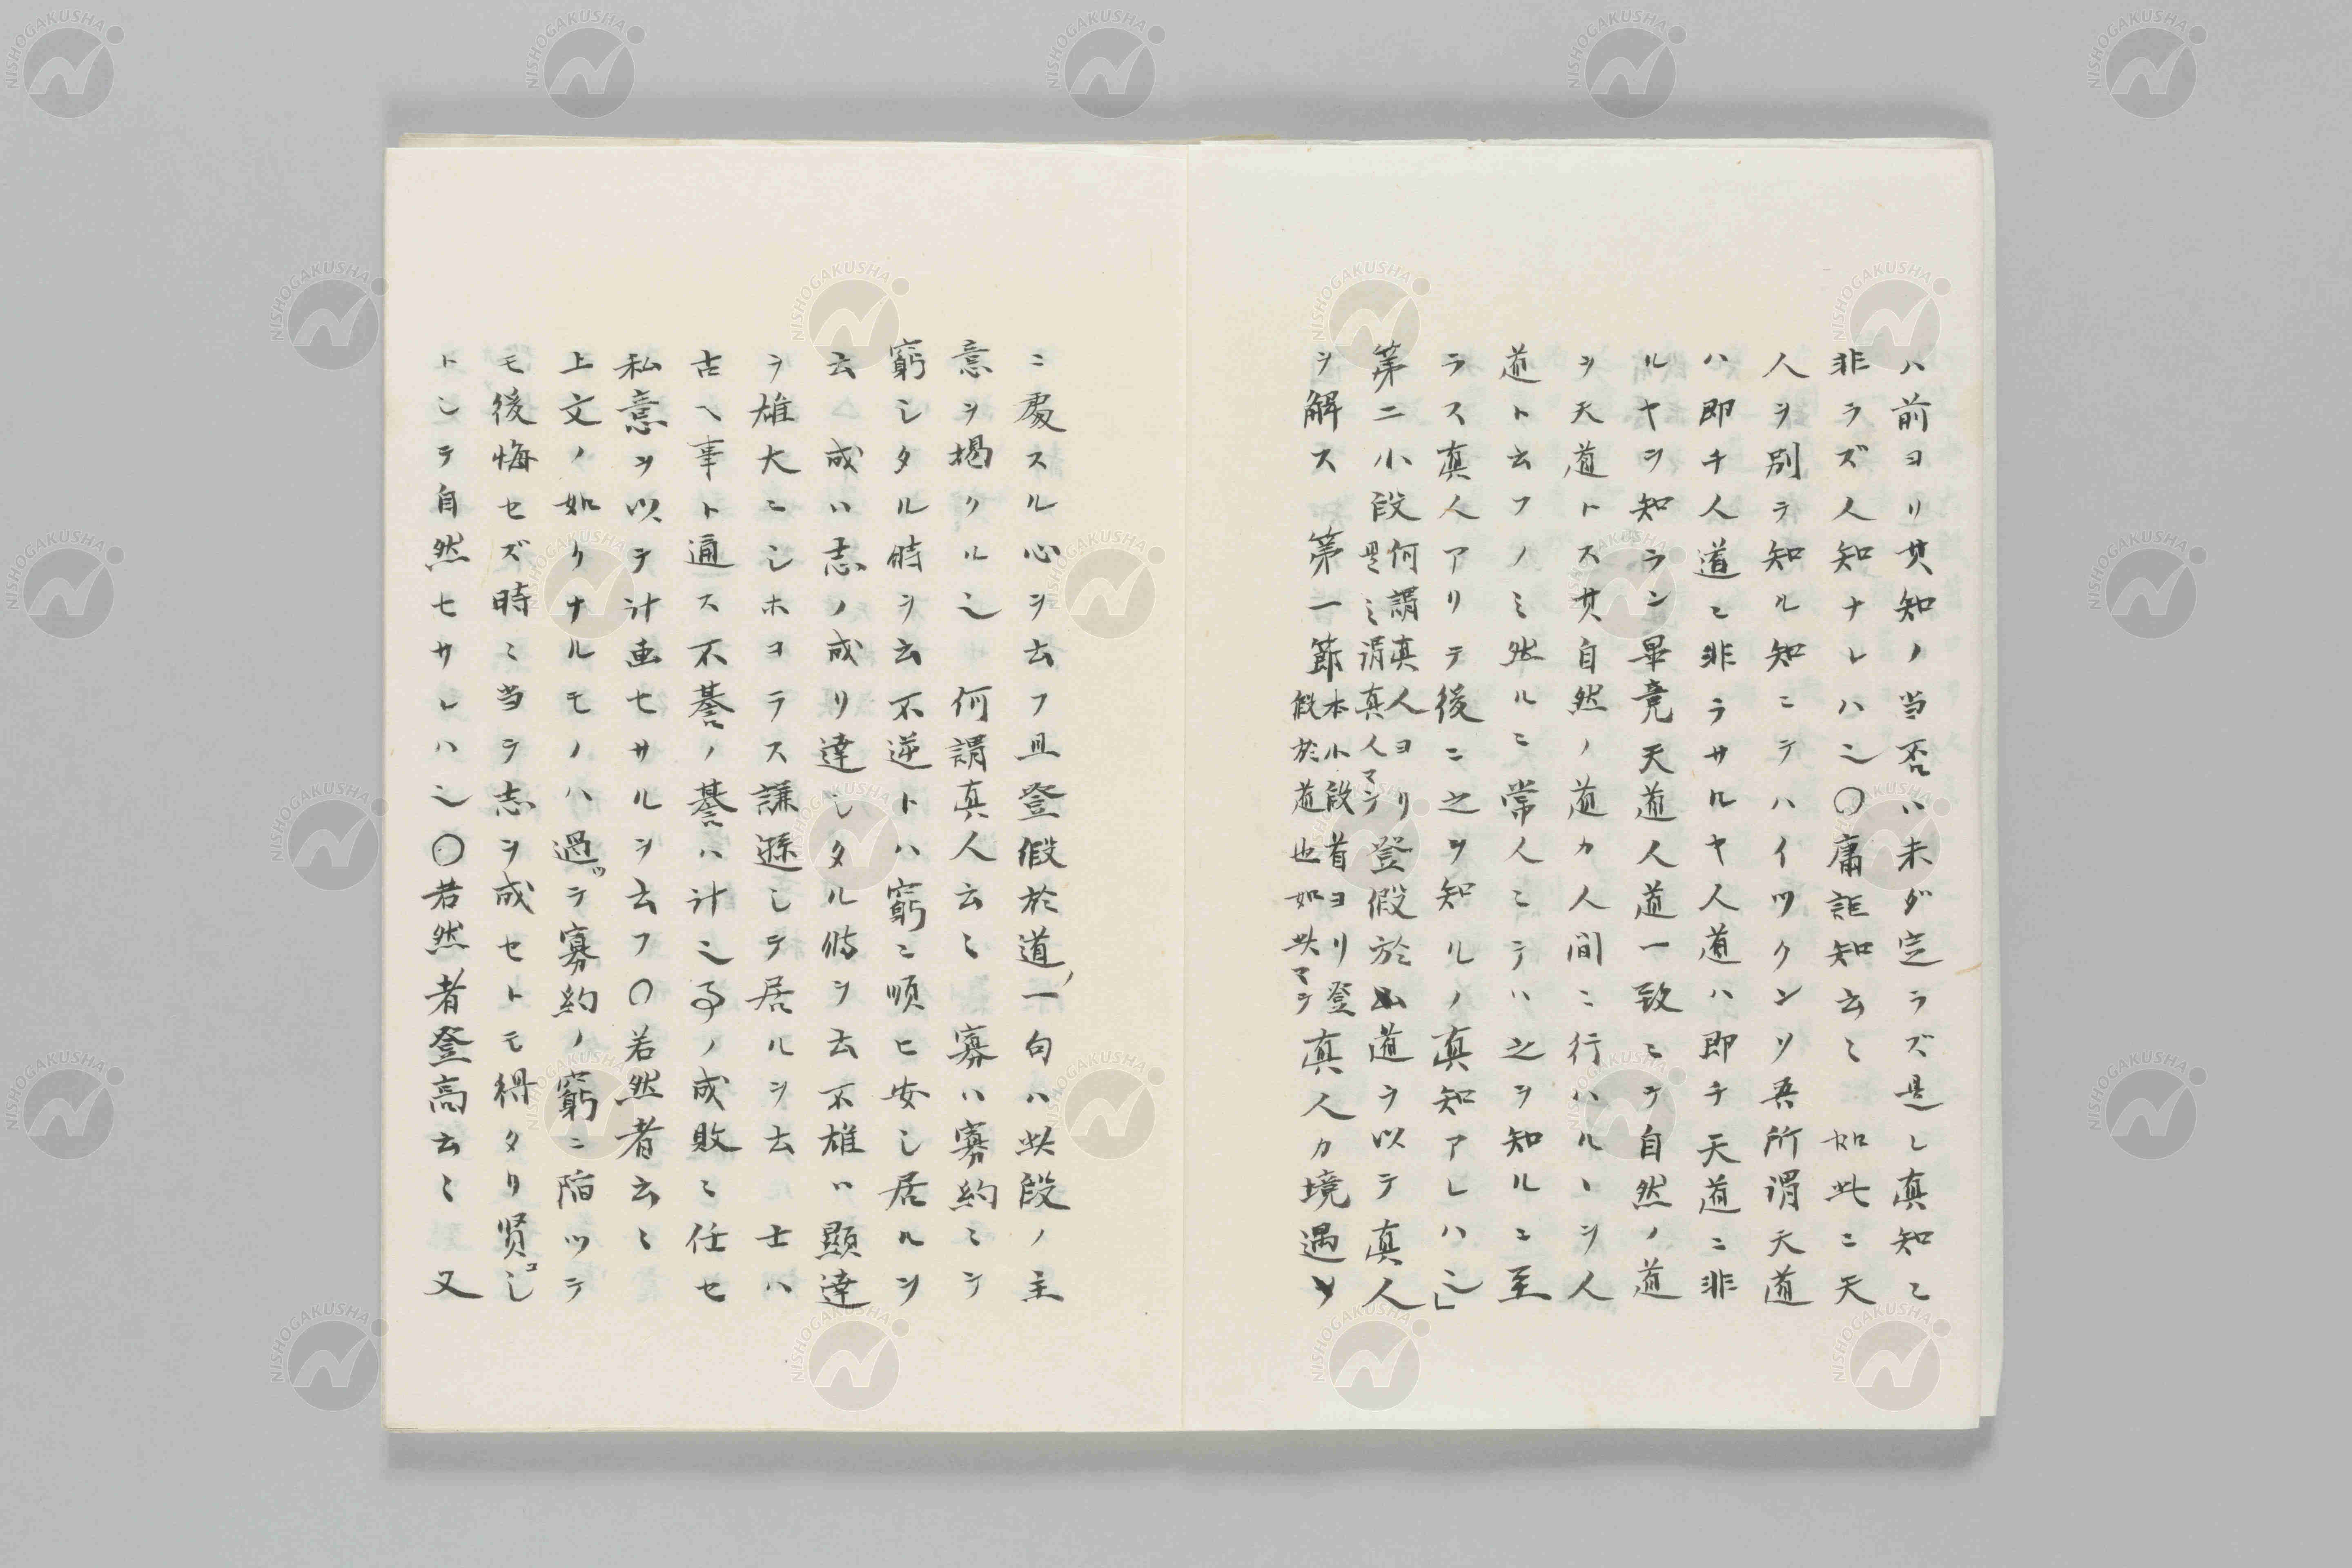 ハ前ヨリ其知ノ当否ハ未ダ定ラズ是レ真知ニ
非ラズ人知ナレハ也〇庸詎知云〻 如此ニ天
人ヲ別テ知ル知ニテハイツクンソ吾所謂天道
ハ即チ人道ニ非ラサルヤ人道ハ即チ天道ニ非
ルヤヲ知ラン畢竟天道人道一致ニテ自然ノ道
ヲ天道トス其自然ノ道カ人間ニ行ハルヽヲ人
道ト云フノミ然ルニ常人ニテハ之ヲ知ルニ至
ラス真人アリテ後ニ之ヲ知ルノ真知アレハ也」
第二小段何謂真人ヨリ是之謂真人マテ登假於道ヲ以テ真人
ヲ解ス 第一節本小段首ヨリ登假於道也如此マテ真人カ境遇
ニ處スル心ヲ云フ且登假於道ノ一句ハ此段ノ主
意ヲ掲クル也 何謂真人云〻 寡ハ寡約ニシ
窮シタル時ヲ云不逆トハ窮ニ順ヒ安シ居ルヲ
云 成ハ志ノ成リ達シタル時ヲ云不雄ハ顕達
ヲ雄大ニシホコラス謙遜シテ居ルヲ云 士ハ
古ヘ事ト通ス不謩ノ謩ハ計也事ノ成敗ニ任セ
私意ヲ以テ計画セサルヲ云フ〇若然者云〻
上文ノ如クナルモノハ過ツテ寡約ノ窮ニ陥ツテ
モ後悔セズ時ニ当テ志ヲ成セトモ得タリ賢コシ
トシテ自然セサレハ也〇若然者登高云〻 又